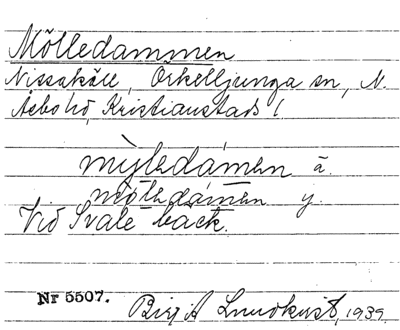 Mölledammen
Nissaköll, Örkelljunga sn, N.
Åsbo hd, Kristianstads l
mỳlledám̄en ä.
mö̀lledám̄en y.
Vid Svale bäck.
Nr 5507.
Birgit Lundkvist, 1939.